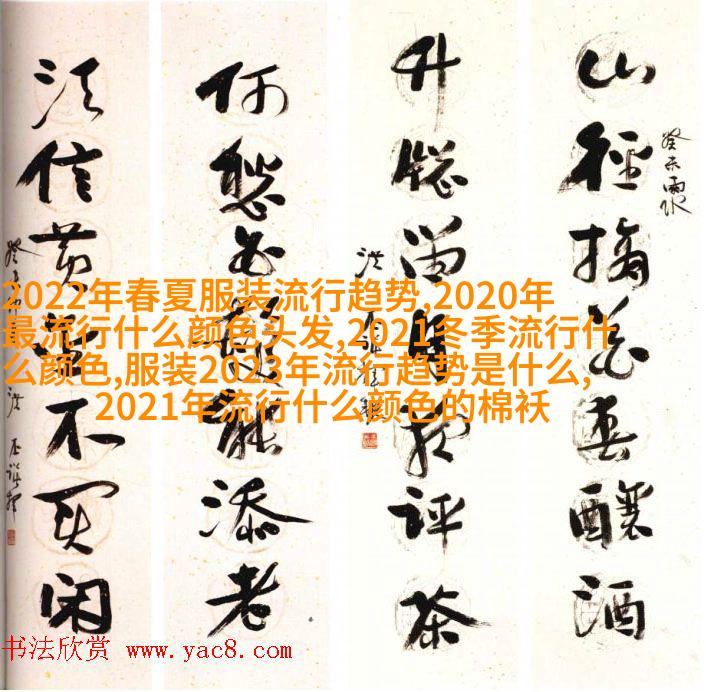 山徑摘花春釀酒
癸未雨水
竹窗留月夜評茶
洪丕謨
何愁白髮能添老
須信黄金不買閑
洪丕謨
2022年春夏服装流行趋势,2020年
最流行什么颜色头发,2021冬季流行什
么颜色,服装2023年流行趋势是什么,
2021年流行什么颜色的棉袄
书法欣赏 www.yac8.com